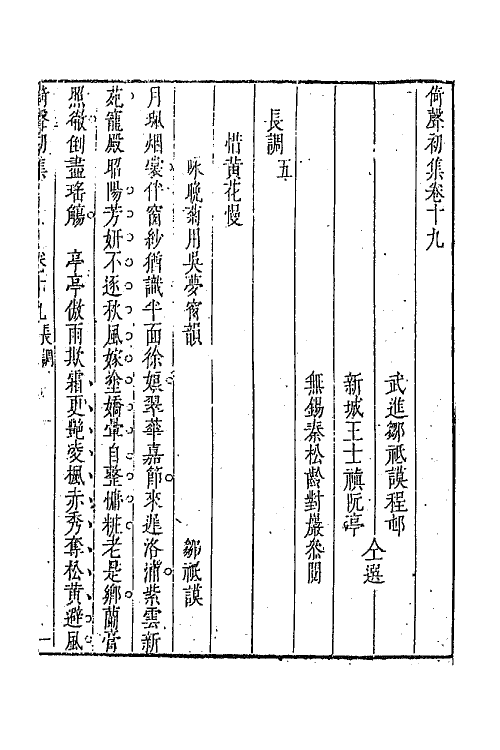 倚聲初集卷十九
武進鄒祗謨程邨
新城王士禛阮亭
仝選
無錫秦松齡對巖叅閱
長調五
惜黄花慢
咏晚菊用吳夢窗韻
鄒祗謨
月珮烟裳伴窗紗猶識半面徐孃翠華嘉節來遲洛浦紫雲新
苑寵殿昭陽芳妍不逐秋風嫁塗嬌暈自整慵粧老是鄉蘭膏
照徹倒盡瑤觴　亭亭傲雨欺霜更艶凌楓赤秀奪松黄避風
倚聲初集　卷十九長調　一